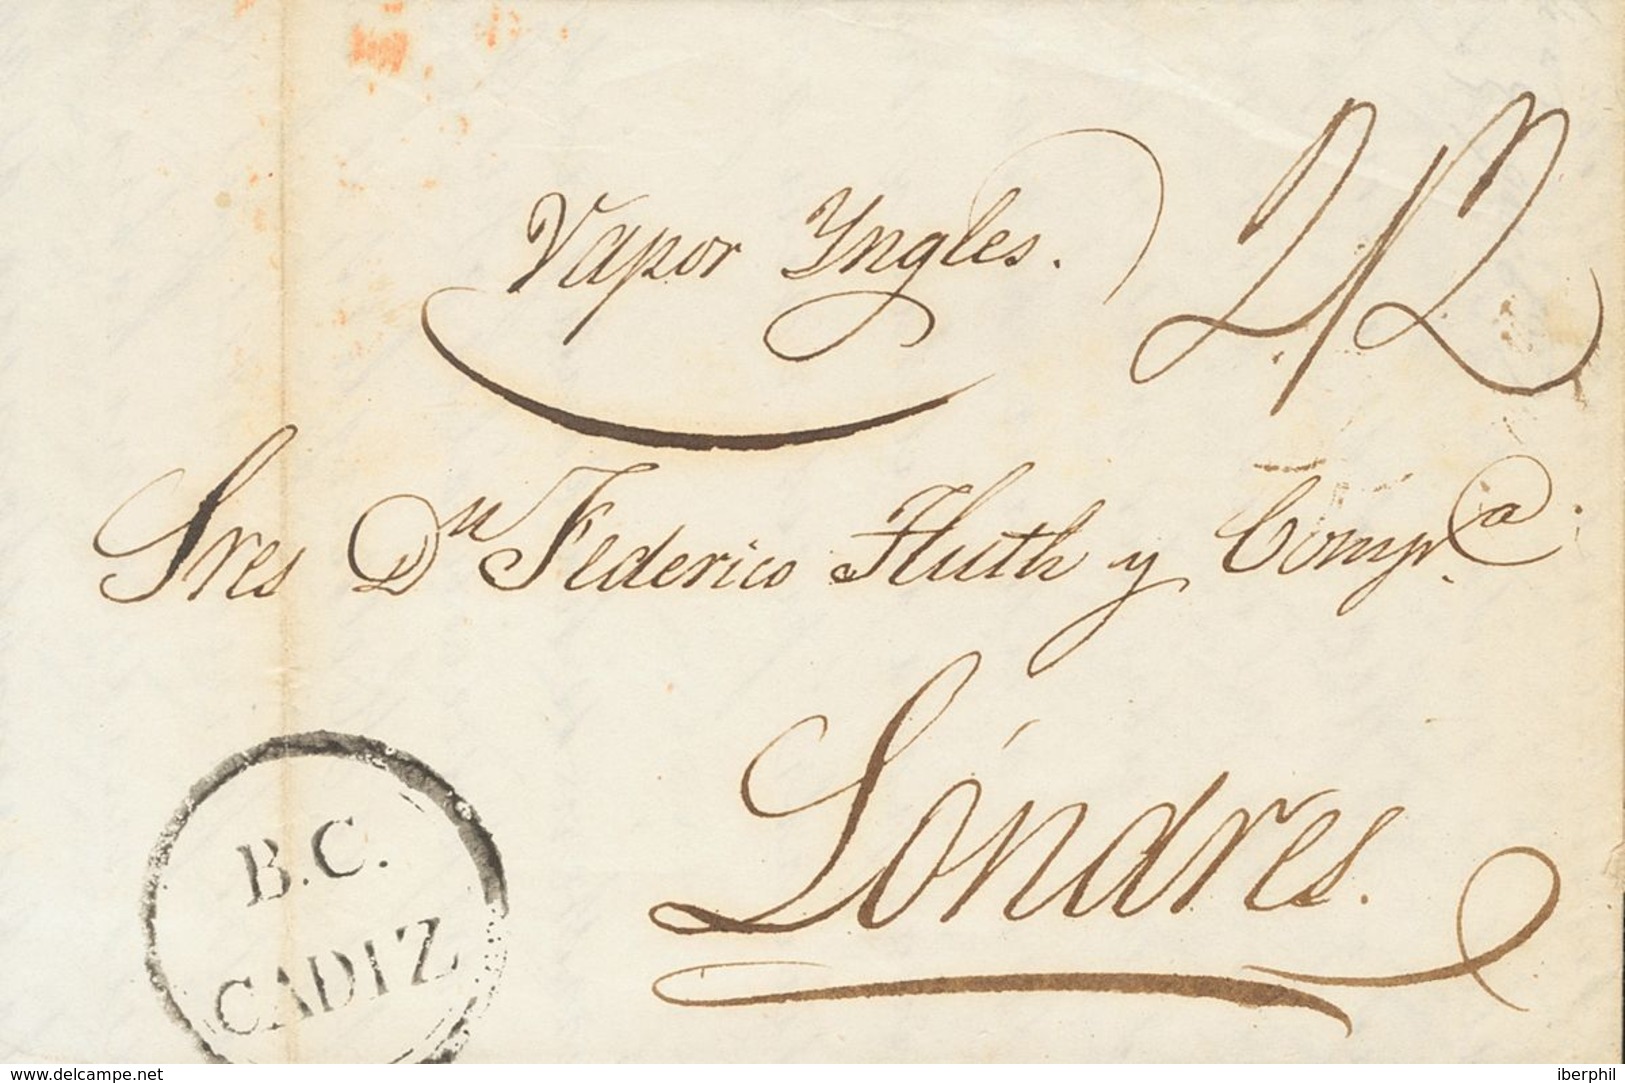 Vapor Yngles.
2/2
Sres Dn Federico Huth y Compa.
Lóndres.
B.C.
CADIZ
www.delcampe.net
iberphil